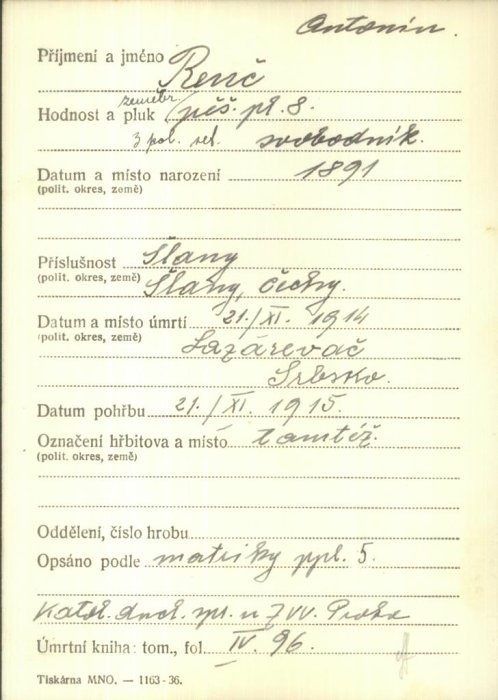 Antonín.
Příjmení a jméno Renč
zeměbr.
Hodnost a pluk pěš. pl. 8.
3 pol. set. svobodník.
Datum a místo narození 1891
(polit. okres, země)
Příslušnost Slaný
(polit. okres, země) Slaný, Čechy.
Datum a místo úmrtí 21./XI. 1914
(polit. okres, země) Lazarevač
Srbsko.
Datum pohřbu 21./XI. 1915.
Označení hřbitova a místo tamtéž.
(polit. okres, země)
Oddělení, číslo hrobu
Opsáno podle matriky ppl. 5.
Katol. duch. spr. u ZVV. Praha
Úmrtní kniha: tom., fol. IV. 96.
Tiskárna MNO. — 1163-36.